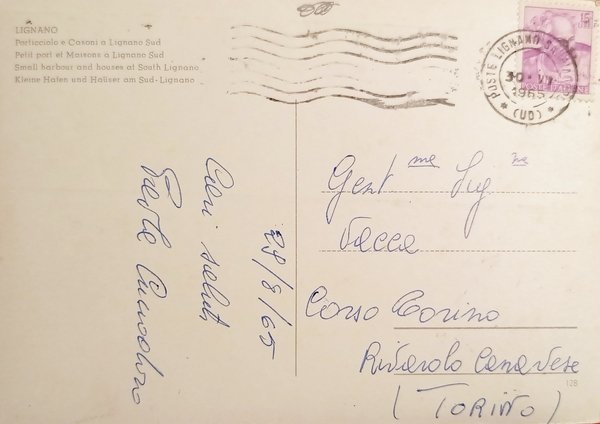 LIGNANO
Porticciolo e Casoni a Lignano Sud
Petit port et Maisons a Lignano Sud
Small harbour and houses at South Lignano
Kleine Hafen und Haüser am Sud-Lignano
POSTE LIGNANO
30
1965
(UD)
POSTE ITALIANE
29/8/65
Cari saluti
Gent me Sig ne
Vacca
Corso Torino
Rivarolo Canavese
(TORINO)
128